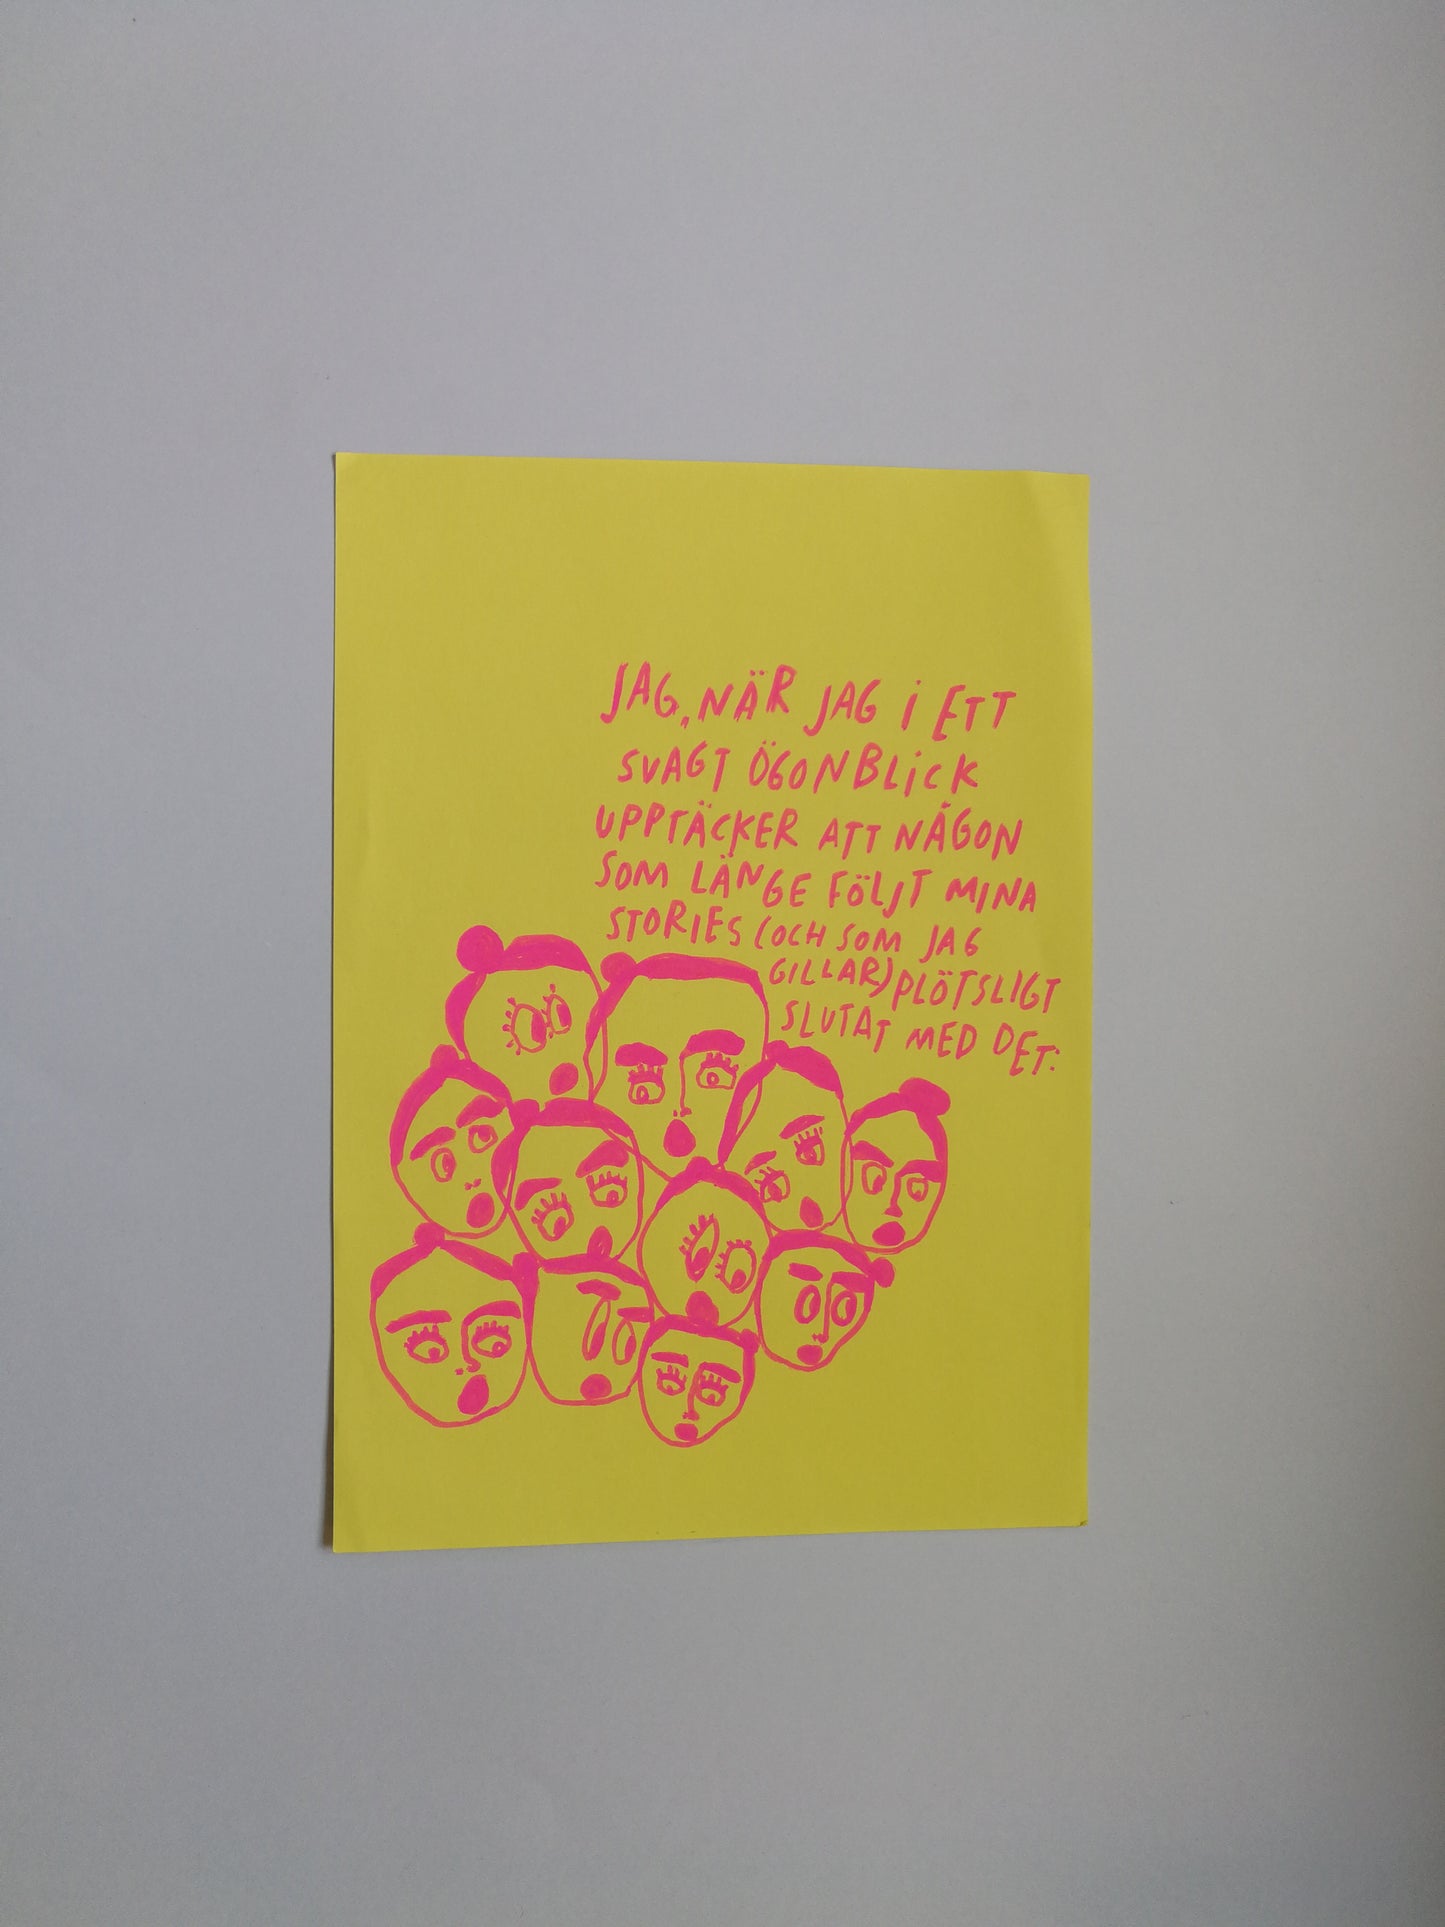 JAG, NÄR JAG i ETT
SVAGT ÖGONBLiCK
UPPTÄCKER ATT NÅGON
SOM LÄNGE FÖLJT MINA
STORIES (OCH SOM JAG
GILLAR) PLÖTSLIGT
SLUTAT MED DET: